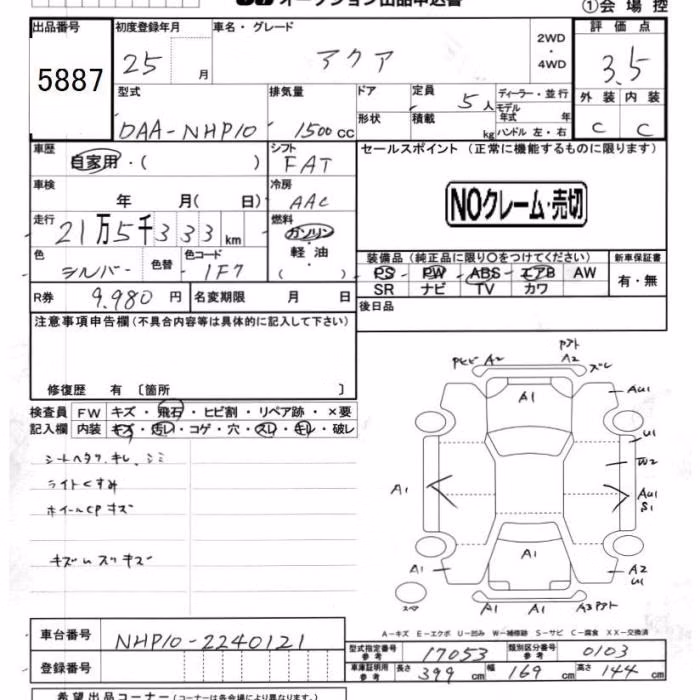 オークション出品申込書
①会場控
出品番号 初度登録年月 車名・グレード 2WD・4WD 評価点
5887 25 月 アクア 3.5
型式 排気量 ドア 定員 5人 ディーラー・並行 外装 内装
DAA-NHP10 1500cc 形状 積載 kg モデル年式 年 ハンドル 左・右 C C
車歴 シフト セールスポイント(正常に機能するものに限ります)
自家用・( ) FAT
車検 冷房
年 月( 日) AAC NOクレーム・売切
走行 燃料
21万5千333km ガソリン・軽油
色 色替 色コード ( ) 装備品(純正品に限り○をつけてください) 新車保証書
シルバー 1F7 PS PW ABS エアB AW 有・無
R券 9.980円 名変期限 月 日 SR ナビ TV カワ
注意事項申告欄(不具合内容等は具体的に記入して下さい) 後日品
修復歴 有〔箇所 〕
検査員 FW キズ・飛石・ヒビ割・リペア跡・×要
記入欄 内装 キズ・汚レ・コゲ・穴・スレ・キレ・破レ
シートヘタリ、キレ、シミ
ライトくすみ
ホイールCPキズ
キズ
A2 A2 ズレ
A1 AU1
U1
W2
A1 AU1
S1
A1 A1 A2
U1
スペア A1 A1 A3
A-キズ E-エクボ U-凹み W-補修跡 S-サビ C-腐食 XX-交換済
車台番号 NHP10-2240121
型式指定番号 参考 17053 類別区分番号 参考 0103
登録番号 車庫証明用 参考 長さ 399cm 幅 169cm 高さ 144cm
希望出品コーナー(コーナーは各会場により異なります)